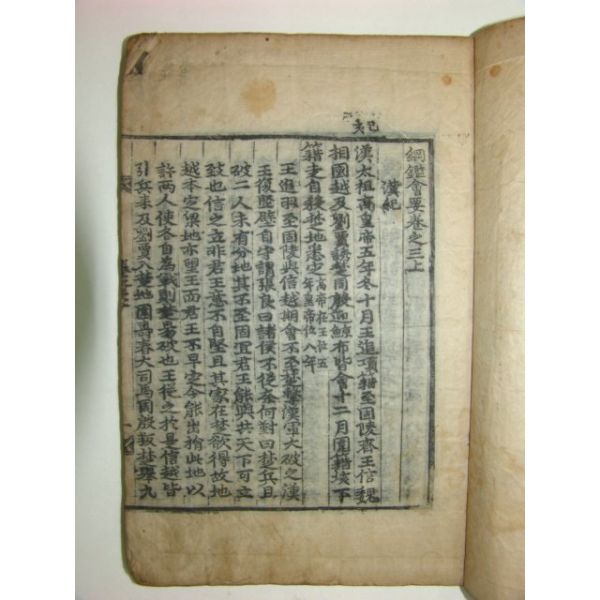 己亥
綱鑑會要卷之三上
漢紀
漢太祖高皇帝五年冬十月王追項籍至固陵齊王信魏
相國越及劉賈誘楚周殷迎鯨布皆會十二月圍籍垓下
籍走自殺楚地悉定高帝在王位五年皇帝位八年
王追羽至固陵與信越期會不至楚擊漢軍大破之漢
王復堅壁自守謂張良曰諸侯不從奈何對曰楚兵且
破二人未有分地其不至固宜君王能與共天下可立
致也信之立非君王意不自堅且其家在楚欲得故地
越本定梁地亦望王而君王不早定今能出捐此地以
許兩人使各自為戰則楚易破也王從之於是信越皆
引兵來及劉賈入楚地圍壽春大司馬周殷叛楚舉九